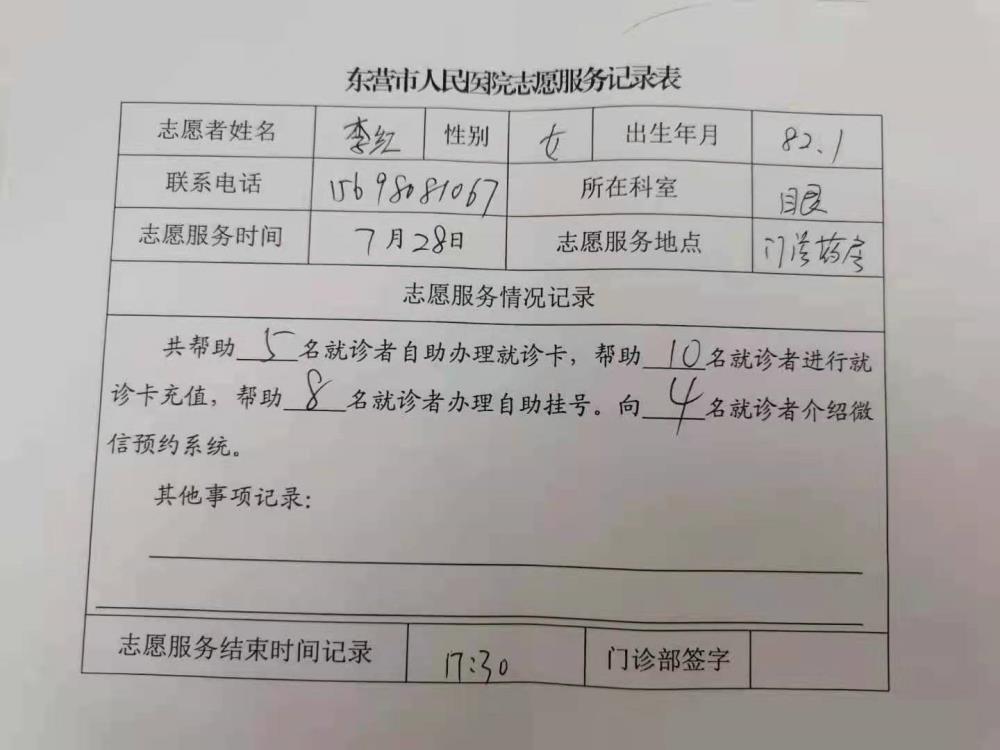 东营市人民医院志愿服务记录表
志愿者姓名 李红 性别 女 出生年月 82.1
联系电话 15698081067 所在科室 眼
志愿服务时间 7月28日 志愿服务地点 门诊药房
志愿服务情况记录
共帮助5名就诊者自助办理就诊卡，帮助10名就诊者进行就
诊卡充值，帮助8名就诊者办理自助挂号。向4名就诊者介绍微
信预约系统。
其他事项记录：
志愿服务结束时间记录 17:30 门诊部签字